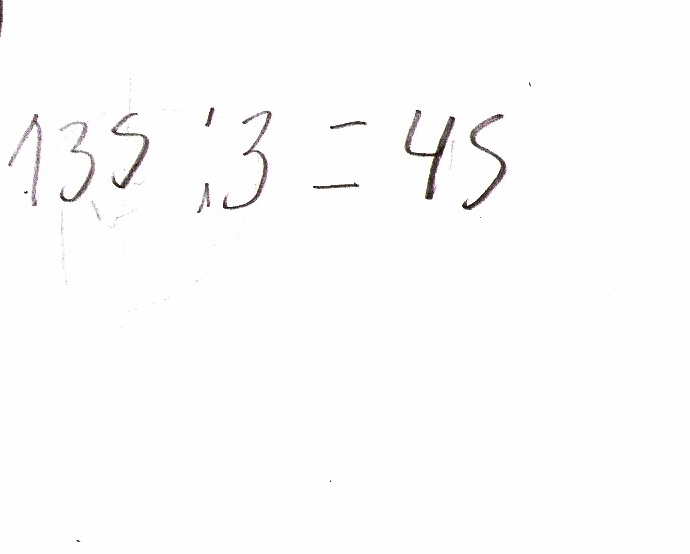 135 : 3 = 45